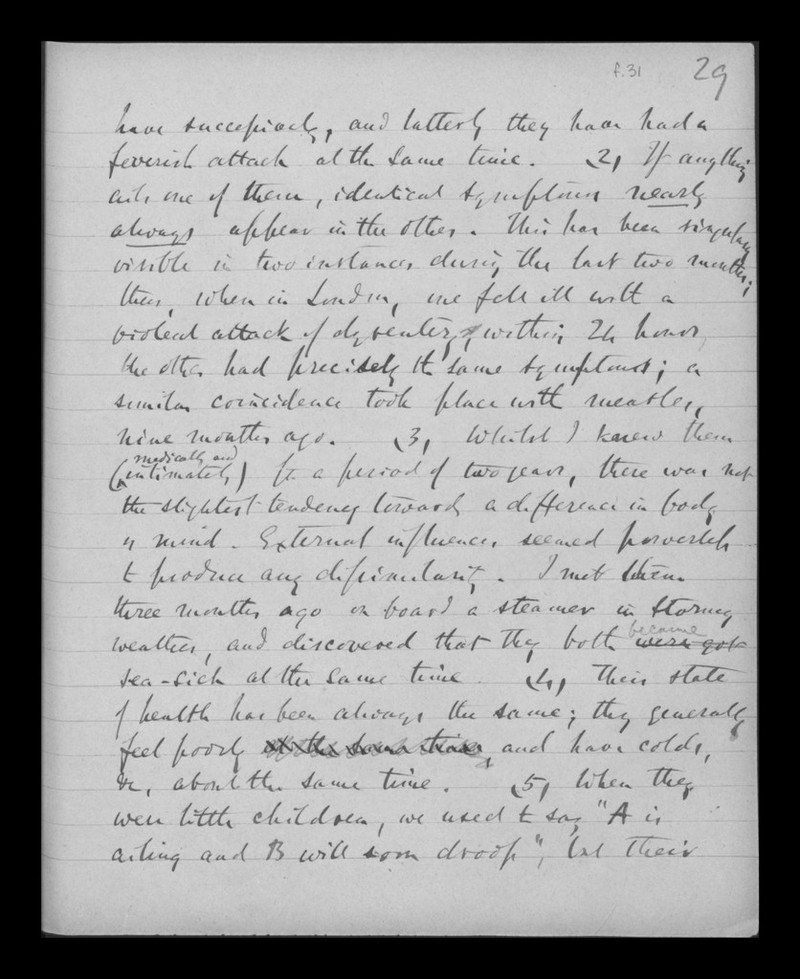 f.31 29
have successively, and latterly they have had a
feverish attack at the same time. (2) If anything
ails one of them, identical symptoms nearly
always appear in the other. This has been singularly
visible in two instances during the last two months;
thus, when in London, one fell ill with a
violent attack of dysentery, within 24 hours,
the other had precisely the same symptoms; a
similar coincidence took place with measles,
nine months ago. (3) Whilst I knew them
medically and
(intimately) for a period of two years, there was not
the slightest tendency towards a difference in body
or mind. External influences seemed powerless
to produce any dissimilarity. I met them
three months ago on board a steamer in stormy
become
weather, and discovered that they both were got
sea-sick at the same time. (4) Their state
of health has been always the same; they generally
feel poorly at the same time, and have colds,
&c, about the same time. (5) When they
were little children, we used to say "A is
ailing and B will soon droop", but their